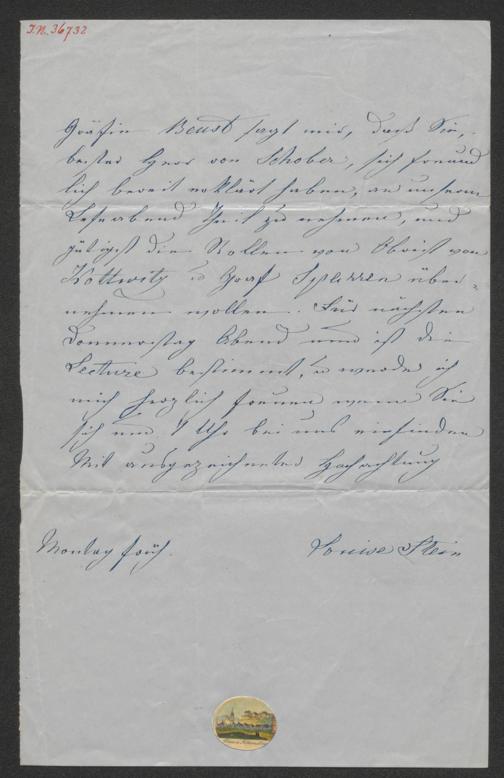 I.N. 36732
Gräfin Beust sagt mir, daß Sie,
bester Herr von Schober, sich freund
lich bereit erklärt haben, an unserm
Leseabend Theil zu nehmen, und
gütigst die Rollen von Obrist von
Kottwitz u Graf Sparren über-
nehmen wollen. Für nächsten
Donnerstag Abend nun ist die
Lecture bestimmt, u werde ich
mich herzlich freuen wenn Sie
sich um 7 Uhr bei uns einfinden
Mit ausgezeichneter Hochachtung
Montag früh. Louise Stein